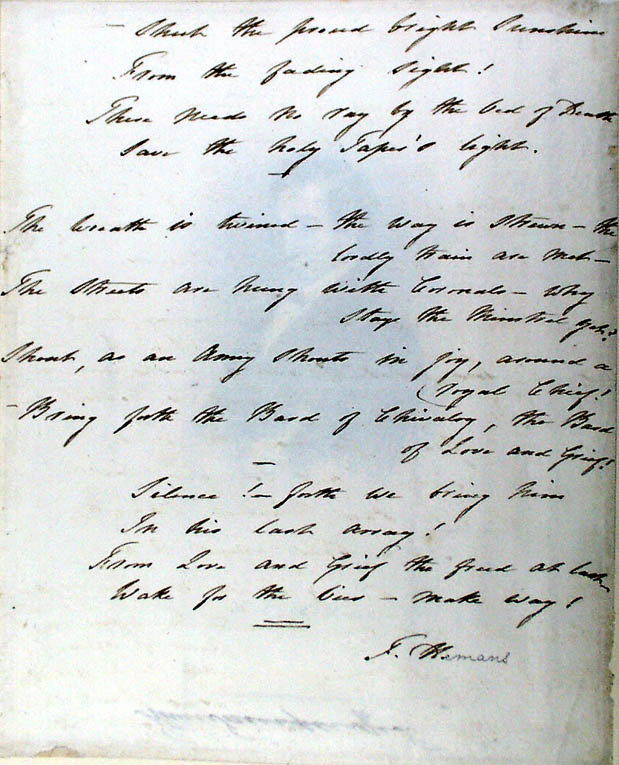 – Shut the proud bright Sunshine
From the fading sight!
There needs no ray by the bed of Death
Save the holy Taper's light.
The wreath is twined – the way is strewn – the
lordly train are met –
The Streets are hung with Coronals – why
stays the Minstrel yet?
Shout, as an Army shouts in joy, around a
royal Chief!
– Bring forth the Bard of Chivalry, the Bard
of Love and Grief!
Silence! – forth we bring him
In his last array!
From Love and Grief the freed at last
Wake for the bier – make way!
F. Hemans